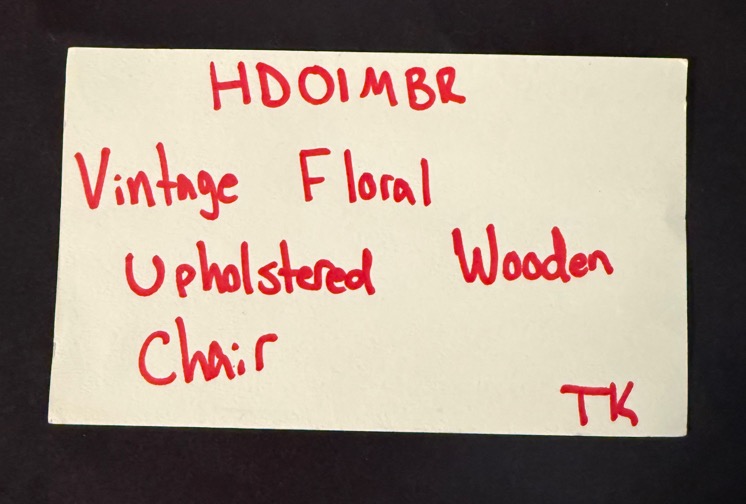 HD01MBR
Vintage Floral
Upholstered Wooden
Chair
TK